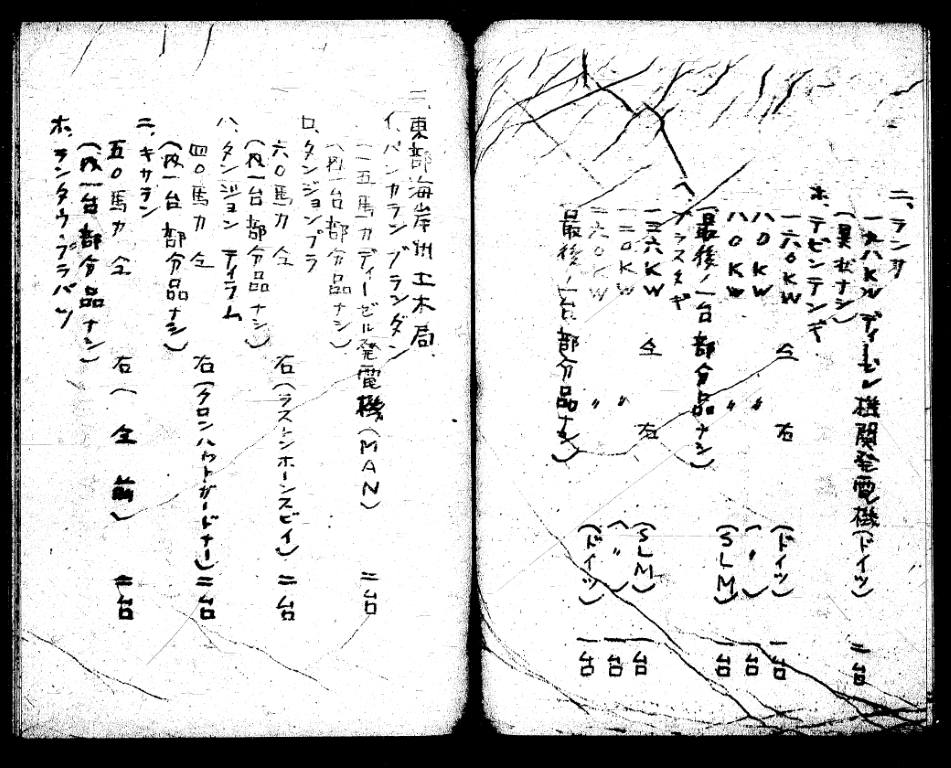 ニ、ランサ
一九八KW ディーゼル機関発電機（ドイツ） 二台
（異状ナシ）
ホ、テビンテンギ
一六〇KW 仝 右 （ドイツ） 一台
八〇KW 〃 （〃） 一台
八〇KW 〃 （SLM） 一台
（最後ノ一台部分品ナシ）
ヘ、ブラスタギ
一三六KW 仝 右 （SLM） 一台
一二〇KW 〃 （〃） 一台
二六〇KW 〃 （ドイツ） 一台
最後ノ一台部分品ナシ）
二、東部海岸州土木局
イ、パンカランブランダン
一一五馬力ディーゼル発電機（MAN） 二台
（内一台部分品ナシ）
ロ、タンジョンプラ
六〇馬力 仝 右（ラストンホーンスビイ） 二台
（内一台部分品ナシ）
ハ、タンジョン ティラム
四〇馬力 仝 右（クロンハウトガードナー） 二台
（内一台部分品ナシ）
ニ、キサラン
五〇馬力 仝 右（仝前） 二台
（内一台部分品ナシ）
ホ、ランタウ・プラパツ